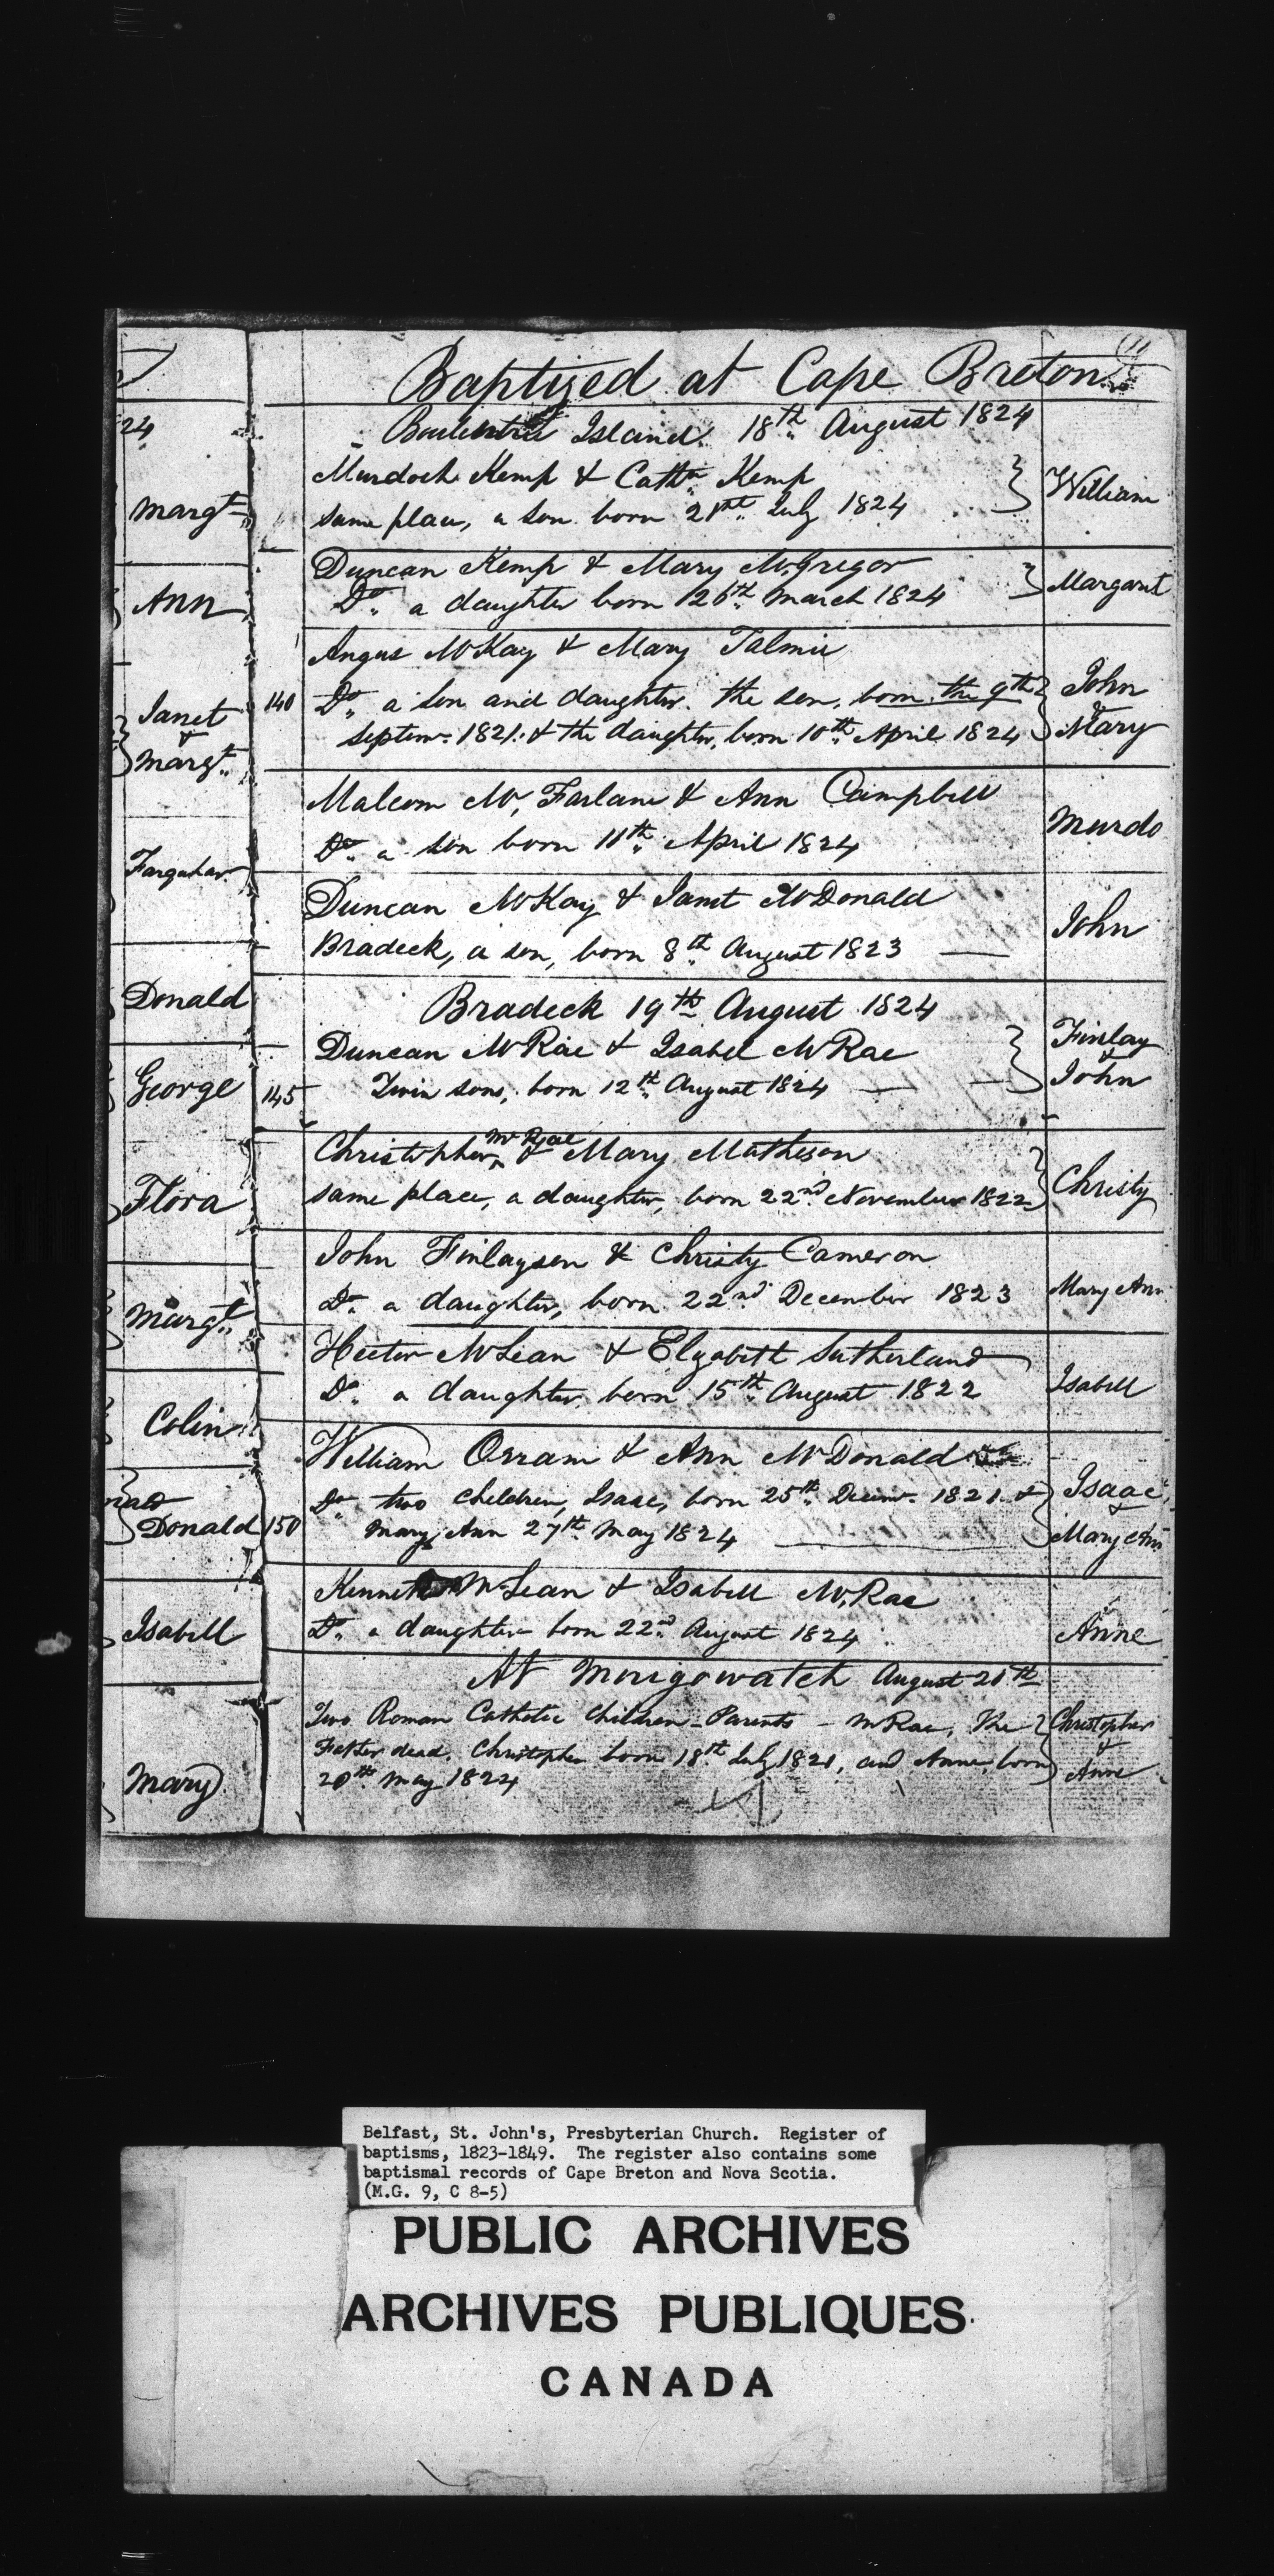 24
Margt
Ann
Janet
&
Margt
Farquhar
Donald
George
Flora
Margt
Colin
Donald
Isabell
Mary
Baptized at Cape Breton
Island 18th August 1824
Murdoch Kemp & Cathn Kemp
same place, a son born 21st July 1824
William
Duncan Kemp & Mary McGregor
Do a daughter born 26th March 1824
Margaret
Angus McKay & Mary
140 Do a son and daughter. the son, born the 9th
Septemr 1821. & the daughter, born 10th April 1824
John
&
Mary
Malcom McFarlane & Ann Campbell
Do a son born 11th April 1824
Murdo
Duncan McKay & Janet McDonald
Bradeck, a son, born 8th August 1823
John
Bradeck 19th August 1824
Duncan McRae & Isabel McRae
145 Twin sons, born 12th August 1824
Finlay
&
John
Christopher McRae & Mary Matheson
same place, a daughter, born 22nd November 1822
Christy
John Finlayson & Christy Cameron
Do a daughter, born 22nd December 1823
Mary Ann
Hector McLean & Elizabeth Sutherland
Do a daughter, born 15th August 1822
Isabell
William Orram & Ann McDonald
Do two children, Isaac, born 25th Decemr 1821 &
150 Mary Ann 27th May 1824
Isaac
&
Mary Ann
Kenneth McLean & Isabell McRae
Do a daughter born 22nd August 1824
Anne
At August 21th
Two Roman Catholic Children - Parents - McRae, The
Father dead. Christopher born 18th July 1821, and Anne, born
20th May 1824
Christopher
&
Anne
Belfast, St. John's, Presbyterian Church. Register of
baptisms, 1823-1849. The register also contains some
baptismal records of Cape Breton and Nova Scotia.
(M.G. 9, C 8-5)
PUBLIC ARCHIVES
ARCHIVES PUBLIQUES
CANADA